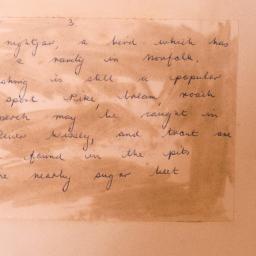 3
nightjar, a bird which has
a rarity in Norfolk.
is still a popular
sport. Pike, bream, roach
perch may be caught in
and trout are
found in the pits
nearby sugar beet